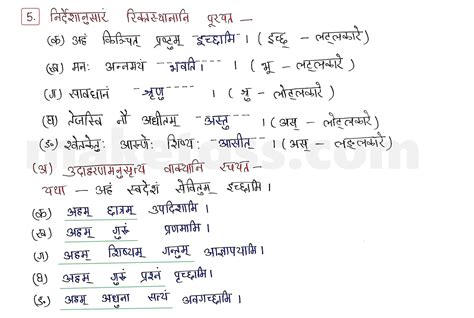 5. निर्देशानुसारं रिक्तस्थानानि पूरयत —
(क) अहं किञ्चित् प्रष्टुम् इच्छामि । (इच्छ् - लट्लकारे)
(ख) मनः अन्नमयं भवति । (भू - लट्लकारे)
(ग) सावधानं श्रृणु । (श्रु - लोट्लकारे)
(घ) तेजस्वि नौ अधीतम् अस्तु । (अस् - लोट्लकारे)
(ङ) श्वेतकेतुः आरुणेः शिष्यः आसीत् । (अस् - लङ्लकारे)
(अ) उदाहरणमनुसृत्य वाक्यानि रचयत -
यथा - अहं स्वदेशं सेवितुम् इच्छामि ।
(क) अहम् छात्रम् उपदिशामि ।
(ख) अहम् गुरुं प्रणमामि ।
(ग) अहम् शिष्यम् गन्तुम् आज्ञापयामि ।
(घ) अहम् गुरुं प्रश्नं पृच्छामि ।
(ङ) अहम् अधुना सत्यं अवगच्छामि ।